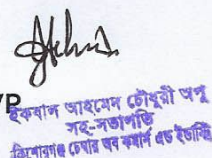 VP
ইকবাল আহমেদ চৌধুরী অপু
সহ-সভাপতি
কিশোরগঞ্জ চেম্বার অব কমার্স এন্ড ইন্ডাষ্ট্রি